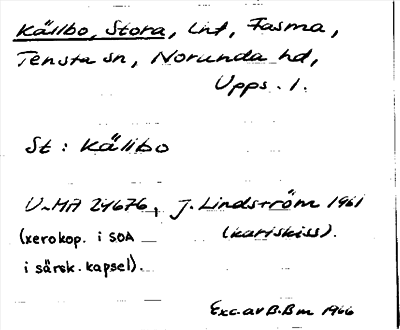 Källbo, Stora, lht, Fasma,
Tensta sn, Norunda hd,
Upps. l.
St: Källbo
U-MA 24676, J. Lindström 1961
(xerokop. i SOA (kartskiss).
i särsk. kapsel).
Exc. av B.Bm 1966